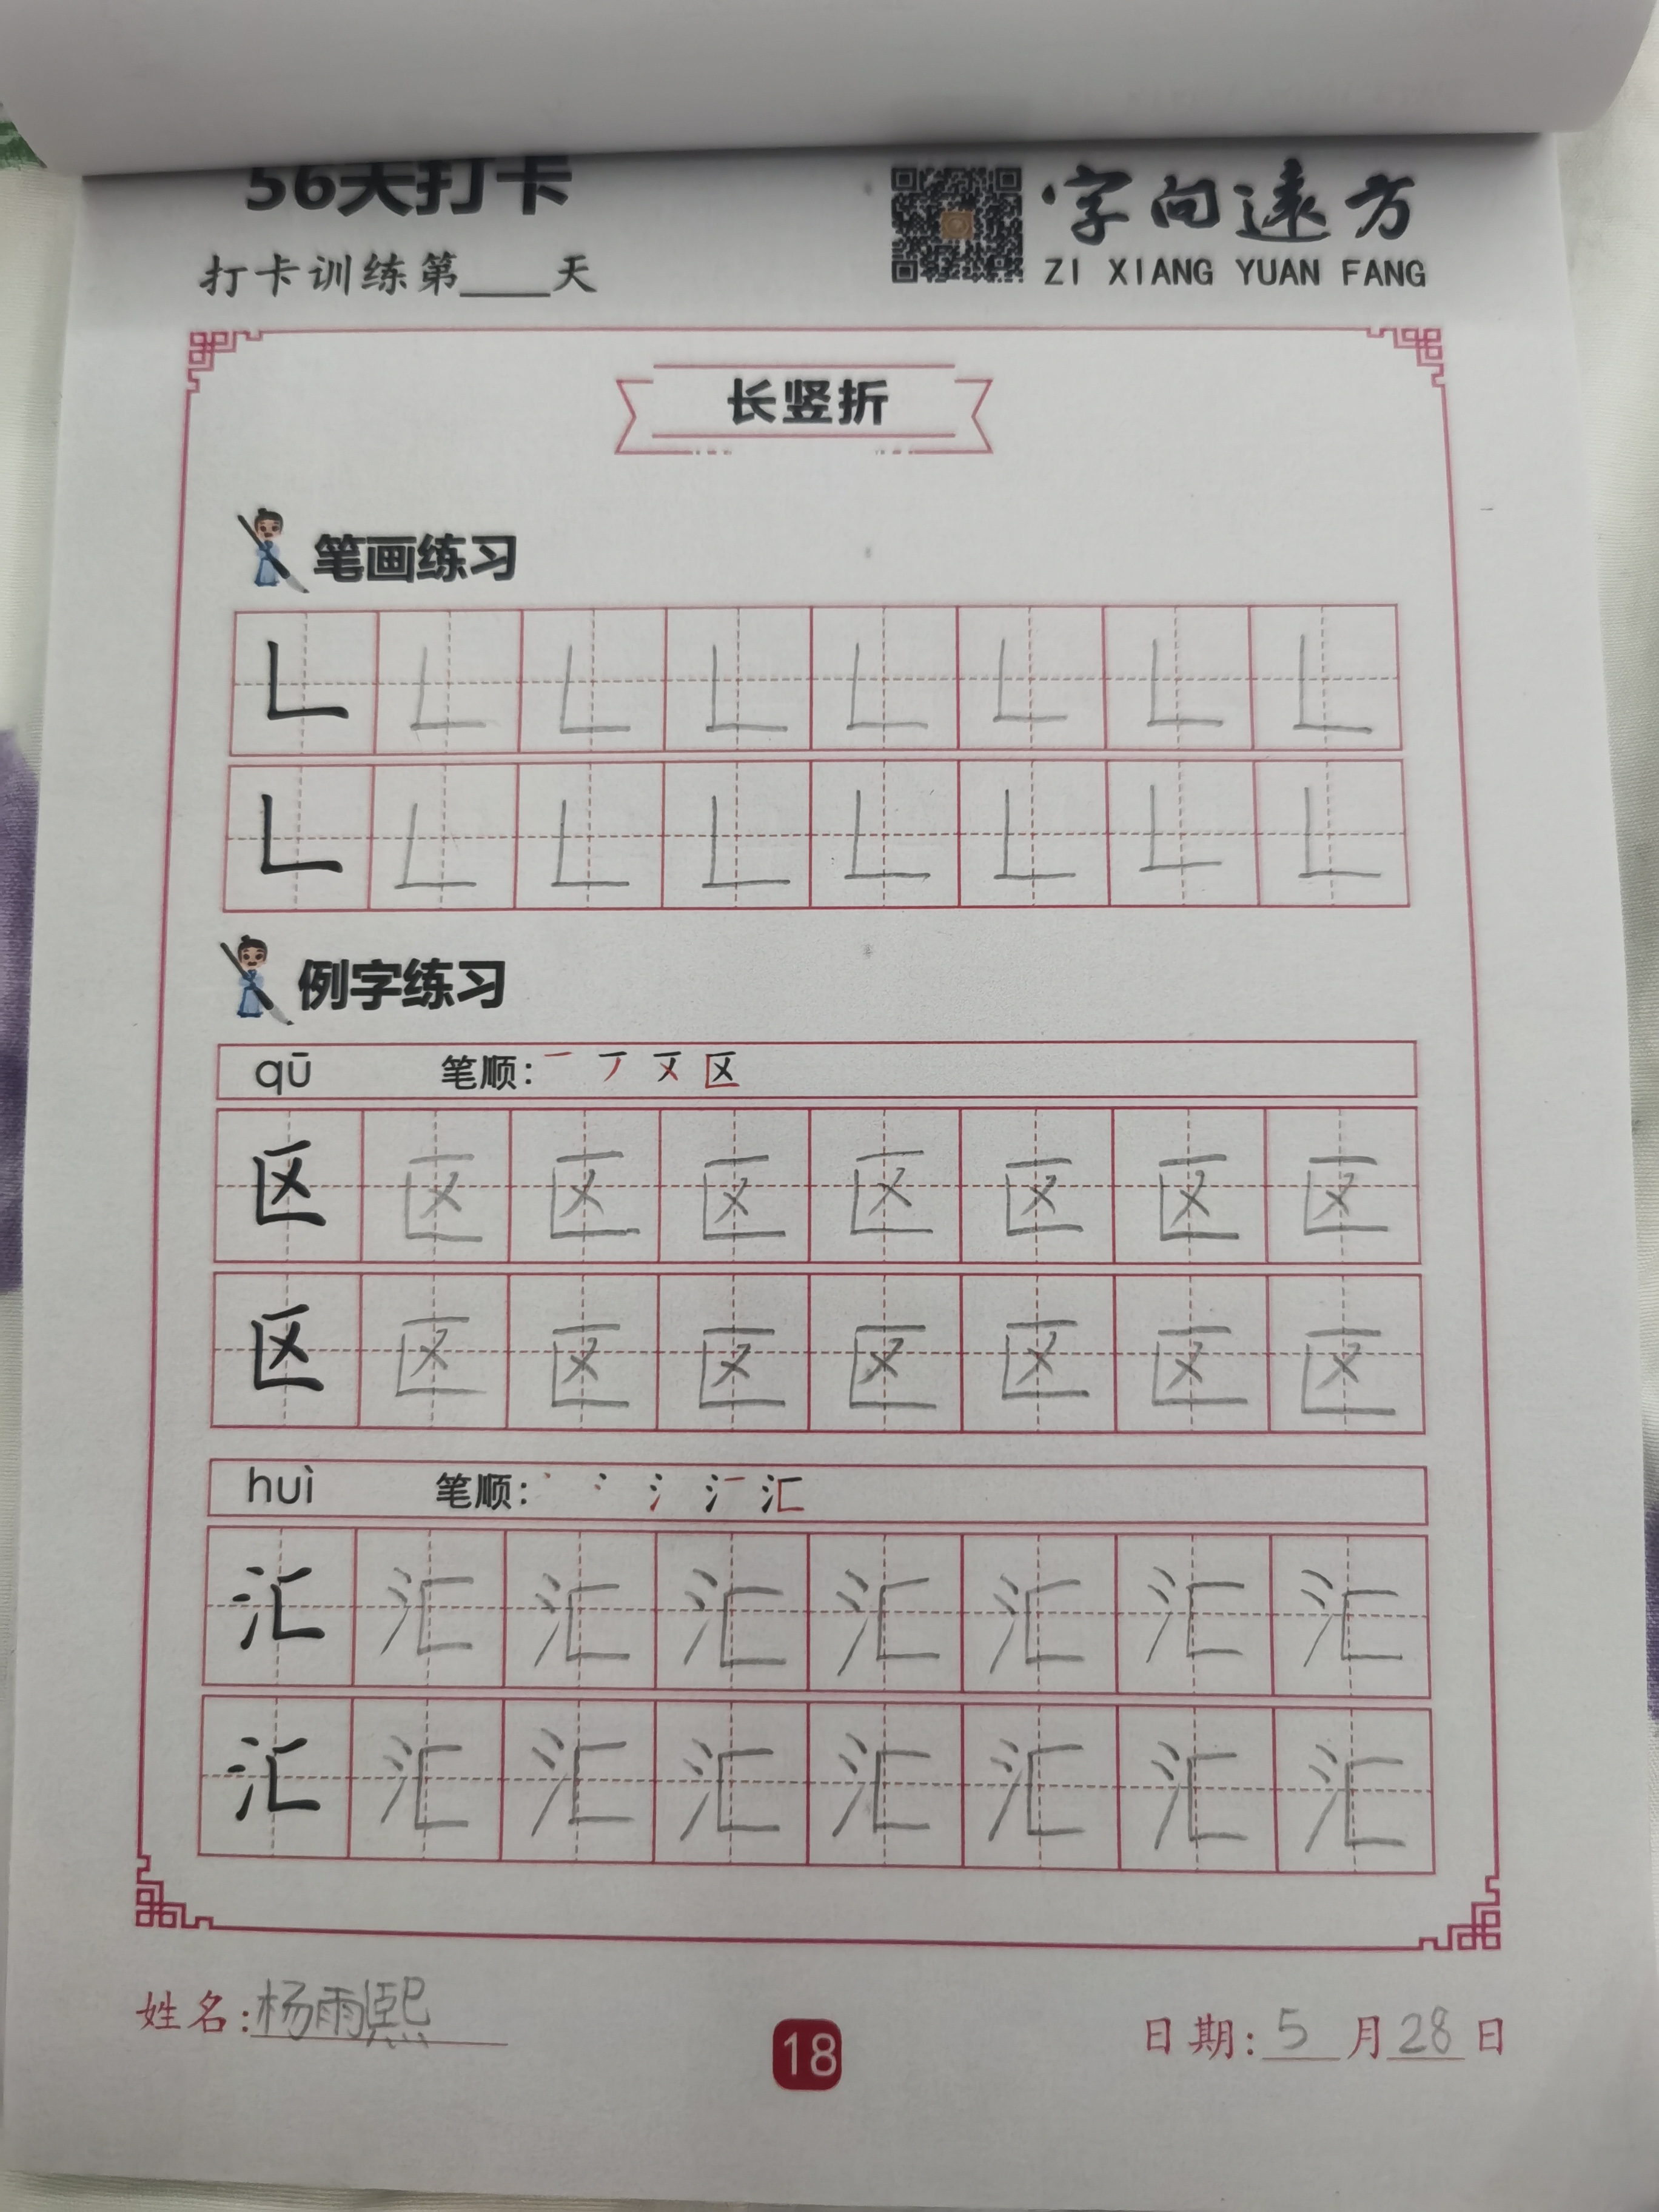 56天打卡
字向遠方
打卡训练第____天
ZI XIANG YUAN FANG
长竖折
笔画练习
𠃊 𠃊 𠃊 𠃊 𠃊 𠃊 𠃊 𠃊
𠃊 𠃊 𠃊 𠃊 𠃊 𠃊 𠃊 𠃊
例字练习
qū 笔顺: 一 丆 㐅 区
区 区 区 区 区 区 区 区
区 区 区 区 区 区 区 区
huì 笔顺: 丶 冫 氵 汇
汇 汇 汇 汇 汇 汇 汇 汇
汇 汇 汇 汇 汇 汇 汇 汇
姓名:杨雨熙
18
日期:5月28日